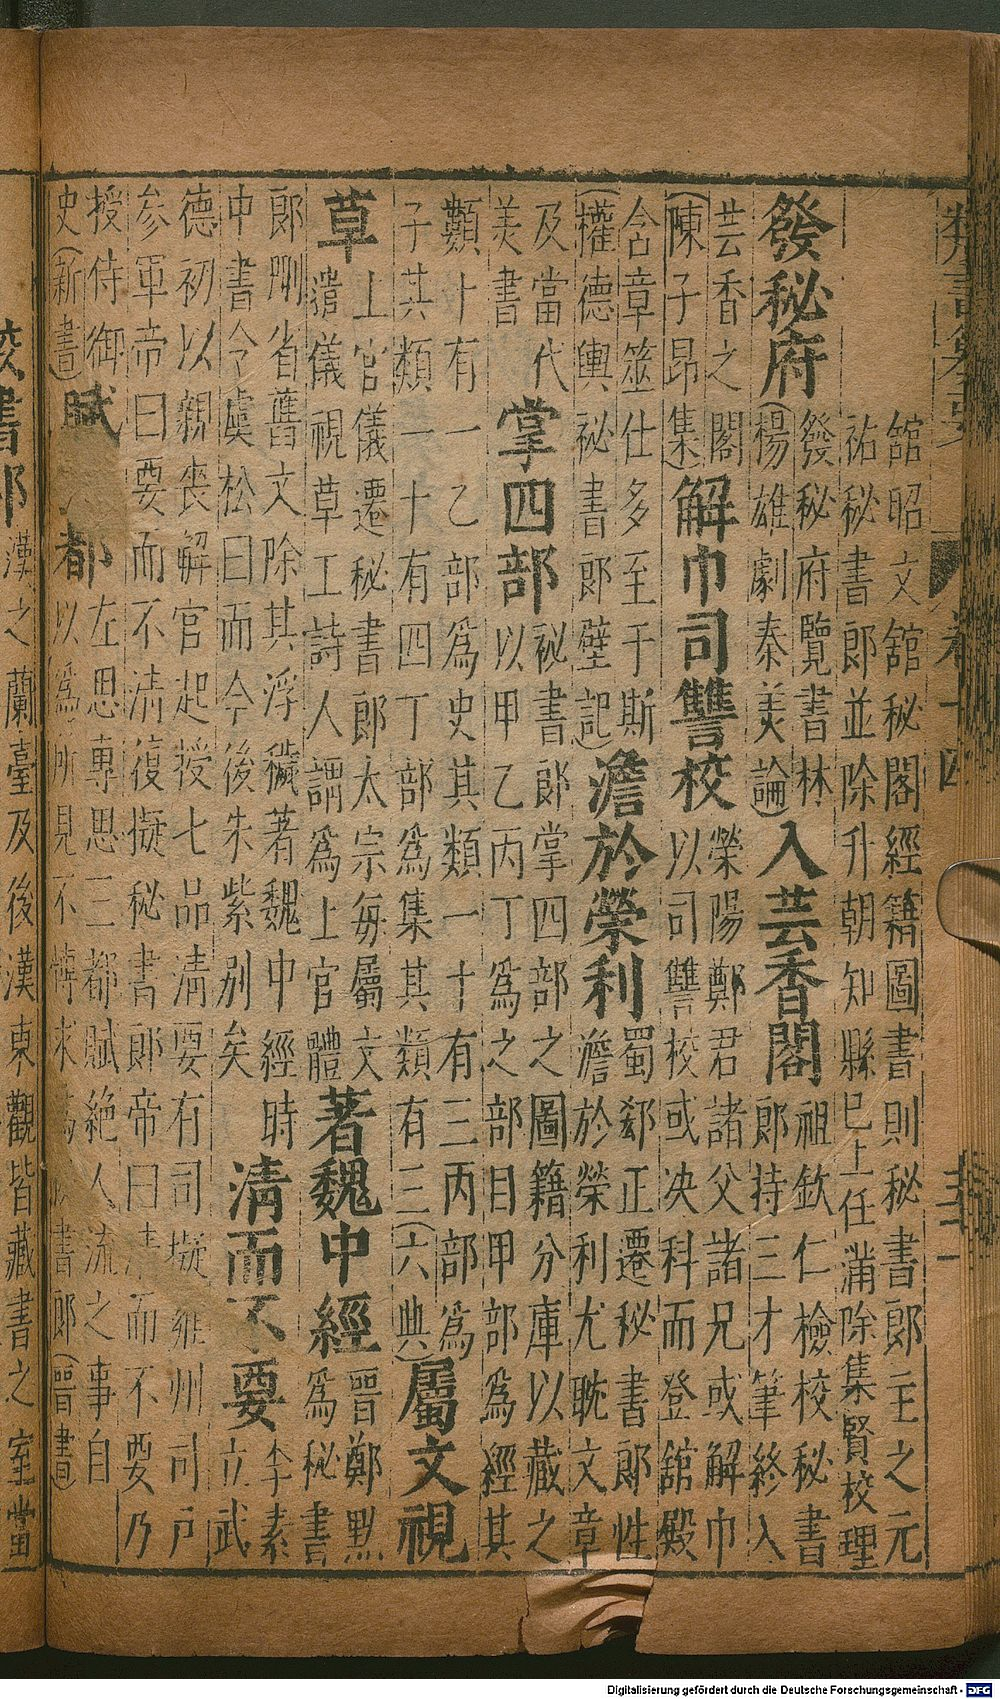 類書纂要 卷十四
舘昭文舘秘閣經籍圖書則秘書郎主之元
祐秘書郎並除升朝知縣巳上任滿除集賢校理
發秘府
發秘府覽書林
(楊雄劇秦美論)
入芸香閣
祖欽仁檢校秘書
郎持三才筆終入
芸香之閣
(陳子昂集)
解巾司讐校
榮陽鄭君諸父諸兄或解巾
以司讐校或决科而登舘殿
含章筮仕多至于斯
(權德輿秘書郎壁記)
澹於榮利
蜀郄正遷秘書郎性
澹於榮利尤耽文章
及當代
美書
掌四部
秘書郎掌四部之圖籍分庫以藏之
以甲乙丙丁爲之部目甲部爲經其
類十有一乙部爲史其類一十有三丙部爲
子其類一十有四丁部爲集其類有三(六典)
屬文視
草
上官儀遷秘書郎太宗每屬文
遣儀視草工詩人謂爲上官體
著魏中經
晋鄭默
爲秘書
郎刪省舊文除其浮穢著魏中經時
中書令虞松曰而今後朱紫别矣
清而不要
李素
立武
德初以親喪解官起授七品清要有司擬雍州司户
參軍帝曰要而不清復擬秘書郎帝曰清而不要乃
授侍御
史(新書)
賦 都
左思專思三都賦絶人流之事自
以爲所見不博求爲 書郎(晋書)
校書郎
漢之蘭臺及後漢東觀皆藏書之室當
Digitalisierung gefördert durch die Deutsche Forschungsgemeinschaft - DFG